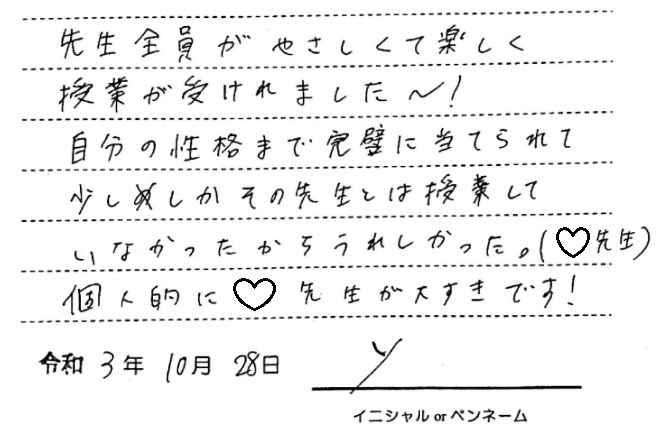 先生全員がやさしくて楽しく
授業が受けれました〜!
自分の性格まで完璧に当てられて
少ししかその先生とは授業して
いなかったからうれしかった。(♡先生)
個人的に♡先生が大すきです!
令和 3年 10月 28日 y
イニシャル or ペンネーム